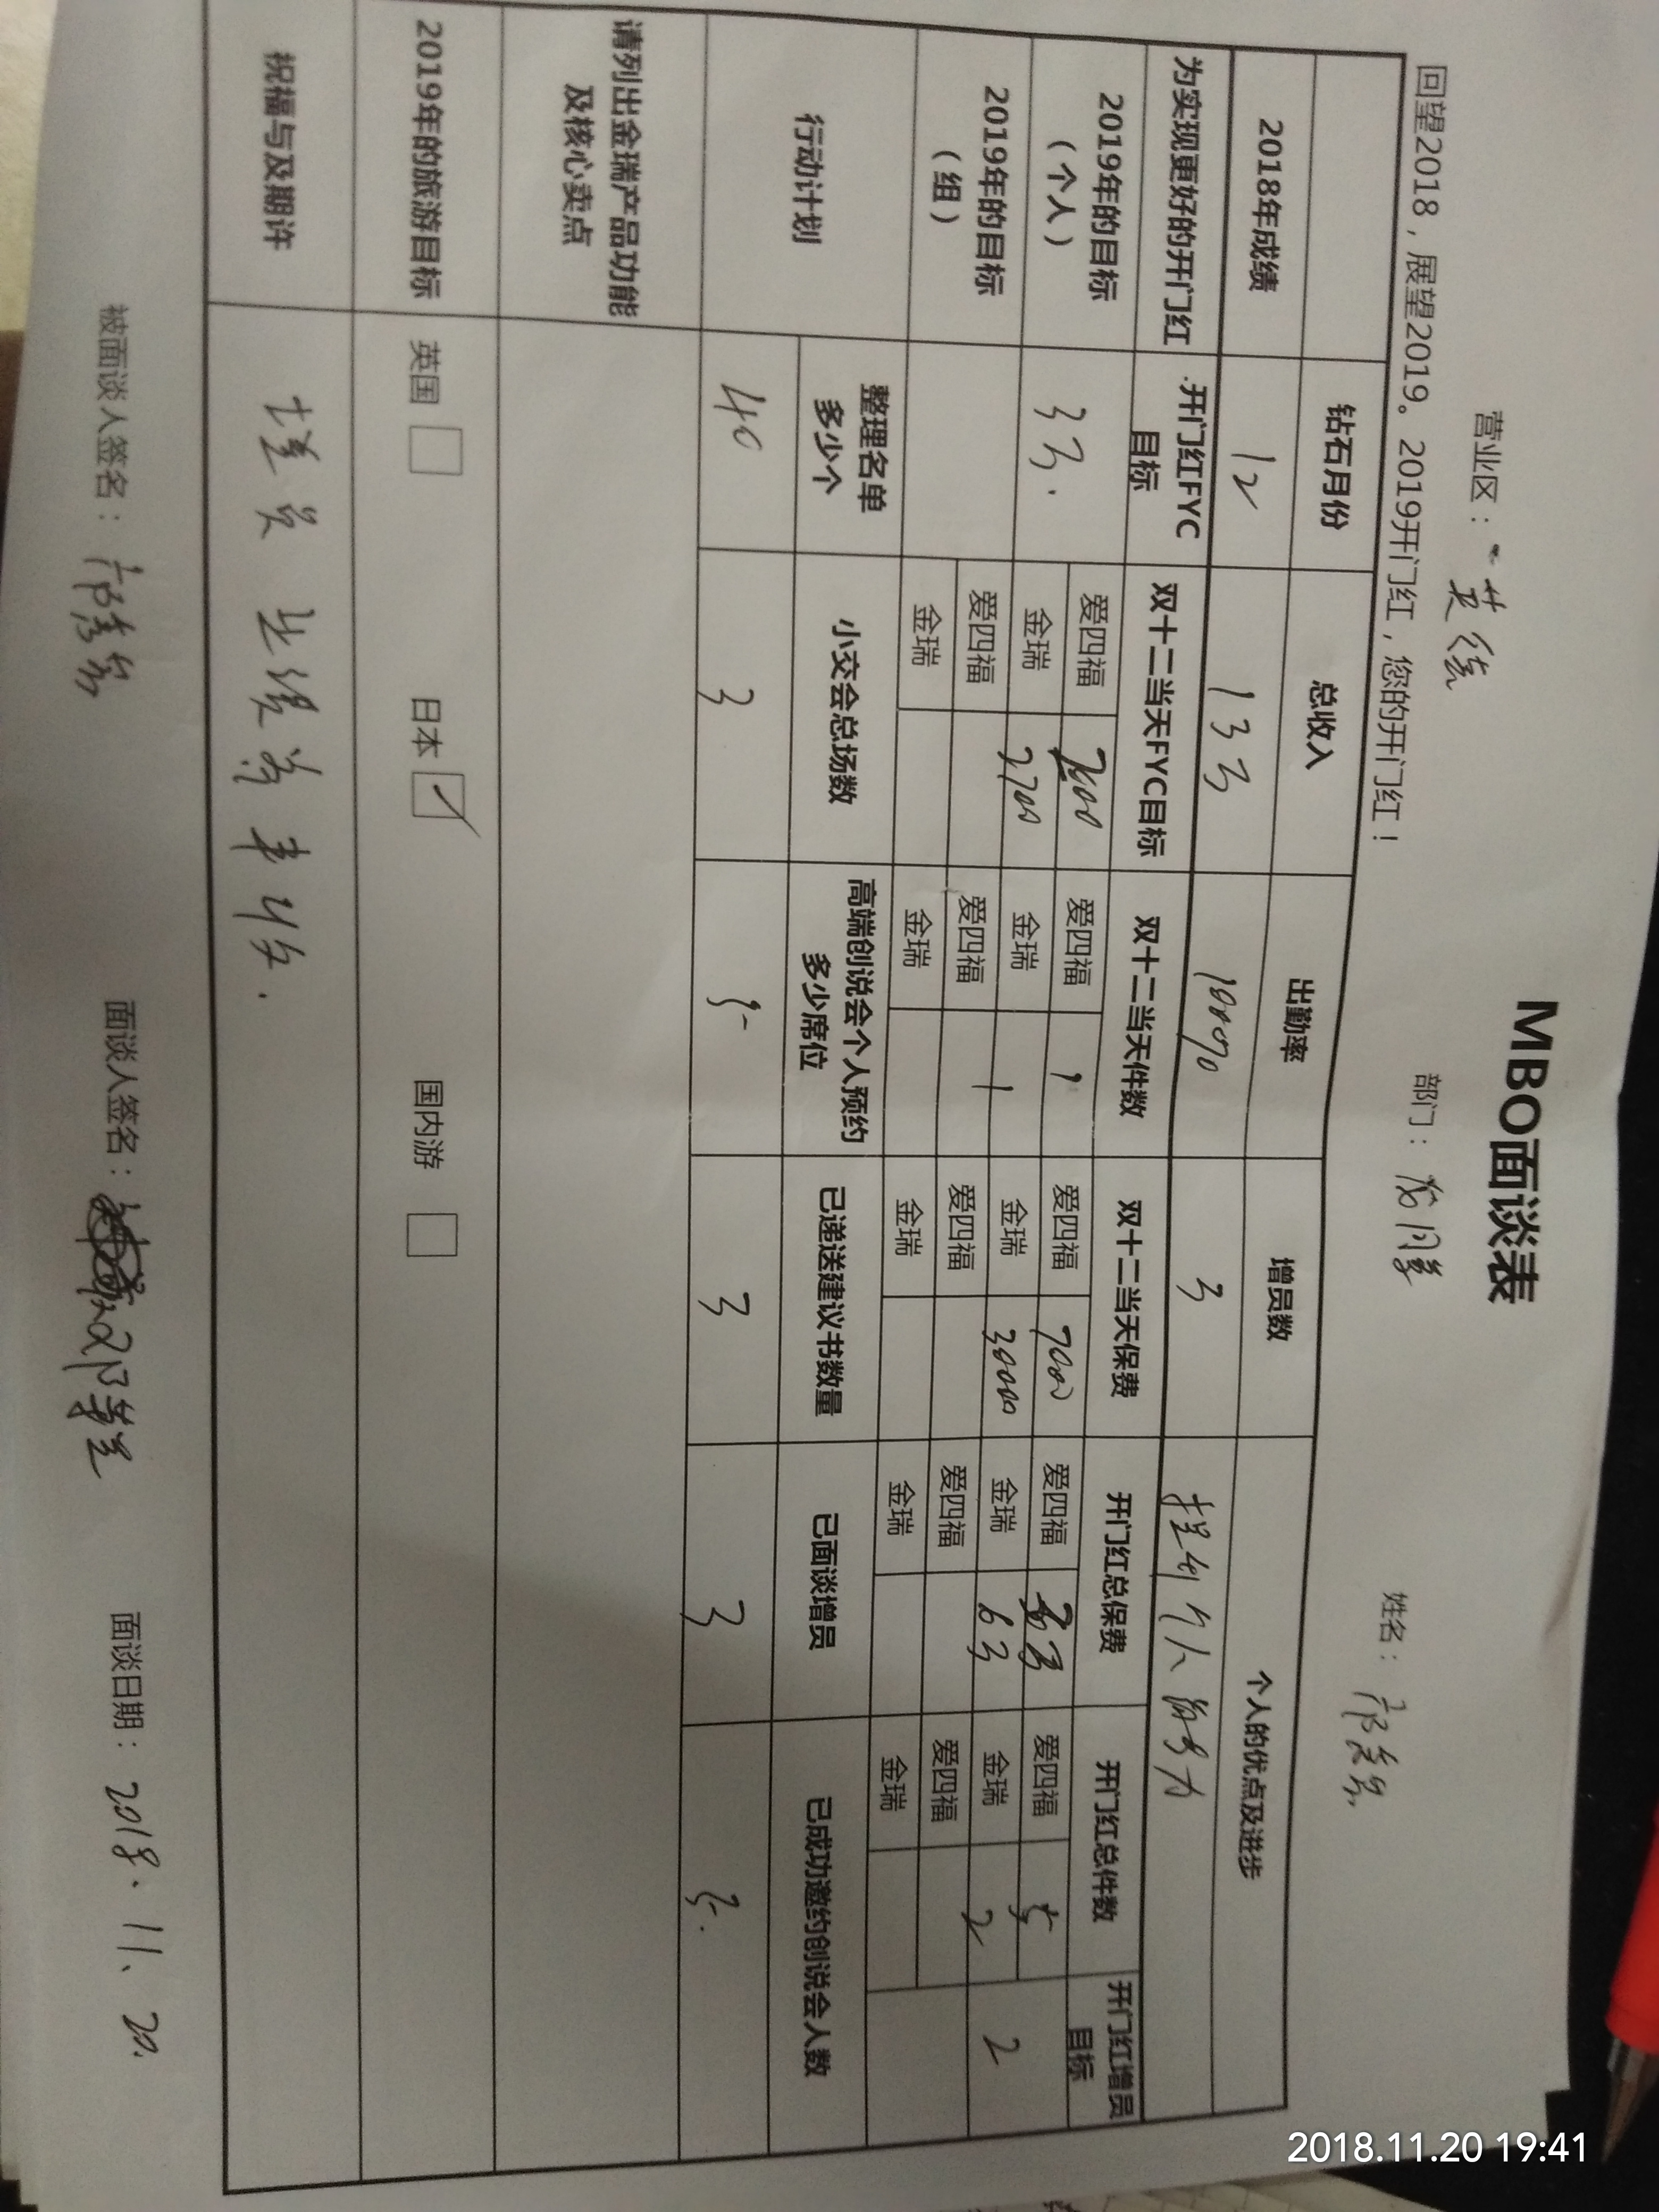 MBO面谈表
营业区：英 部门： 姓名：
回望2018，展望2019。2019开门红，您的开门红！
钻石月份 总收入 出勤率 增员数 个人的优点及进步
2018年成绩 12 13万 100% 3
为实现更好的开门红 开门红FYC目标 双十二当天FYC目标 双十二当天件数 双十二当天保费 开门红总保费 开门红总件数 开门红增员目标
2019年的目标（个人） 3万. 爱四福 爱四福 1 爱四福 7000 爱四福 爱四福 5 2
金瑞 2700 金瑞 1 金瑞 30000 金瑞 6万 金瑞 2
2019年的目标（组） 爱四福 爱四福 爱四福 爱四福 爱四福
金瑞 金瑞 金瑞 金瑞 金瑞
行动计划 整理名单多少个 小交会总场数 高端创说会个人预约多少席位 已递送建议书数量 已面谈增员 已成功邀约创说会人数
40 3 3 3
请列出金瑞产品功能及核心卖点
2019年的旅游目标 英国 □ 日本 ☑ 国内游 □
祝福与及期许 增员 业绩 丰收.
被面谈人签名： 面谈人签名： 面谈日期：2018.11、20.
2018.11.20 19:41